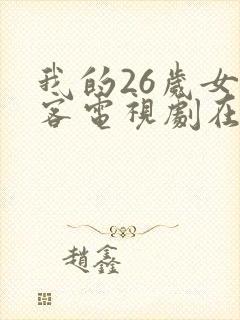 我的26歲女
客電視劇在
趙鑫